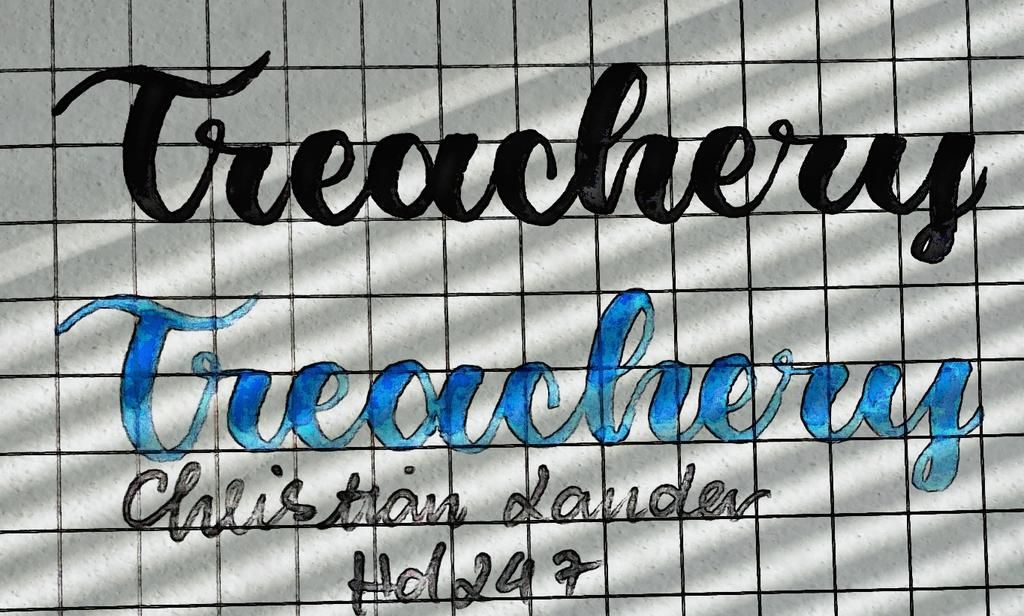 Treachery
Treachery
Christian Lauder
Hd247